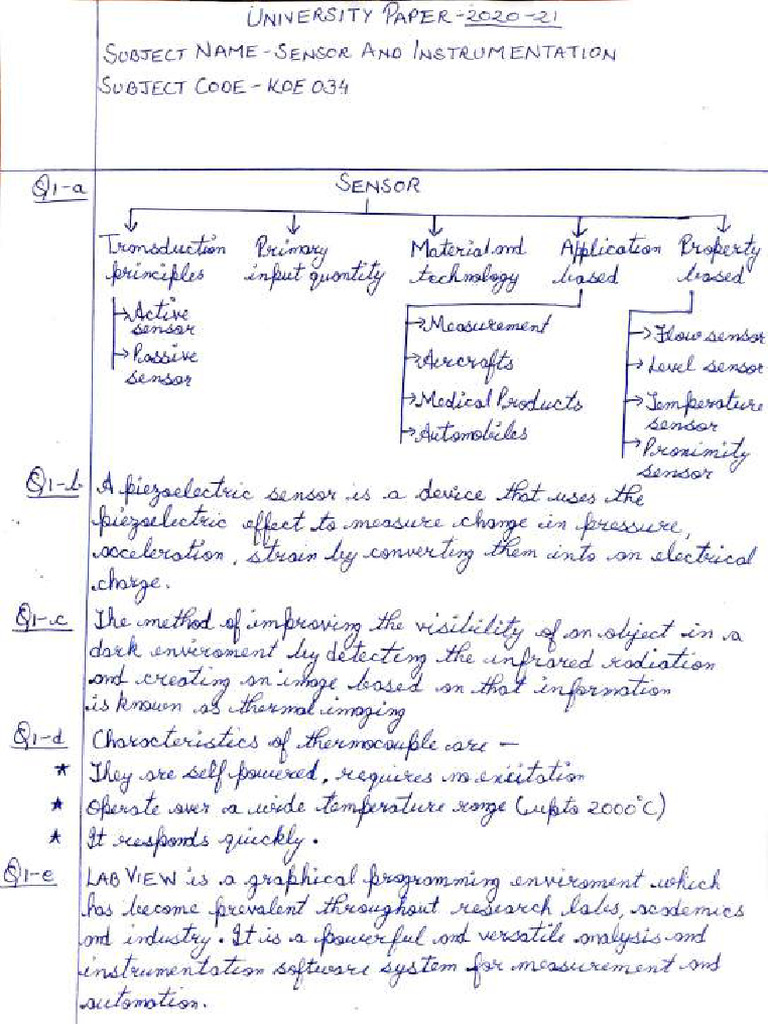 UNIVERSITY PAPER-2020-21
SUBJECT NAME-SENSOR AND INSTRUMENTATION
SUBJECT CODE-KOE034
Q1-a
SENSOR
Transduction principles
Primary input quantity
Material and technology
Application based
Property based
→Active sensor
→Passive sensor
→Measurement
→Aercrafts
→Medical Products
→Automobiles
→Flow sensor
→Level sensor
→Temperature sensor
→Proximity sensor
Q1-b A piezoelectric sensor is a device that uses the
piezoelectric effect to measure change in pressure,
acceleration, strain by converting them into an electrical
charge.
Q1-c The method of improving the visibility of an object in a
dark enviroment by detecting the infrared radiation
and creating an image based on that information
is known as thermal imaging
Q1-d Characteristics of thermocouple are –
★ They are self powered, requires no exiitation
★ Operate over a wide temperature range (upto 2000°C)
★ It responds quickly.
Q1-e LAB VIEW is a graphical programming enviroment which
has become prevalent throughout research labs, academics
and industry. It is a powerful and versatile analysis and
instrumentation software system for measurement and
automation.